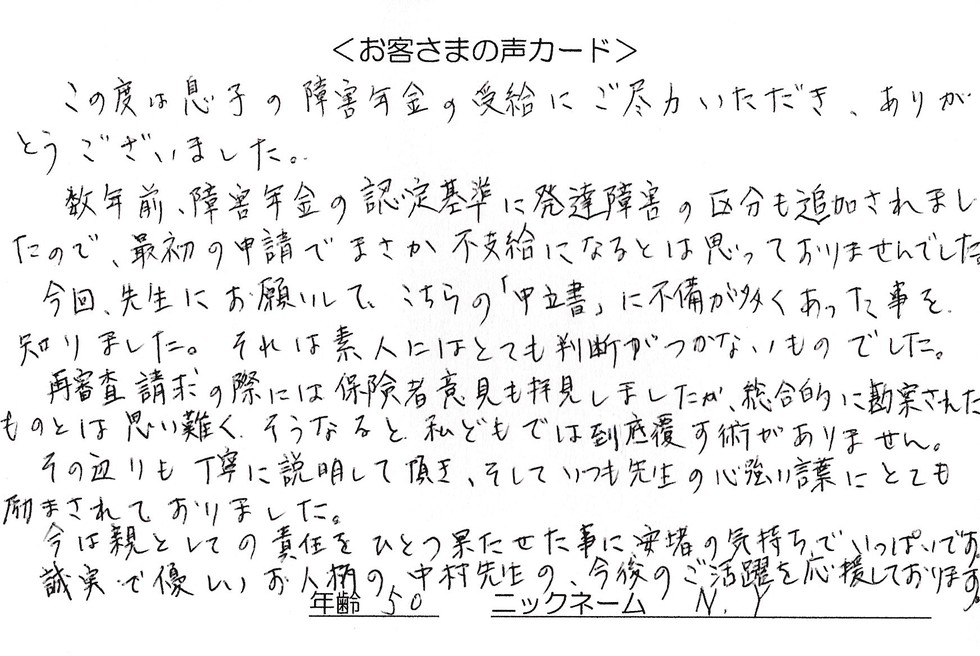 ＜お客さまの声カード＞
この度は息子の障害年金の受給にご尽力いただき、ありが
とうございました。
数年前、障害年金の認定基準に発達障害の区分も追加されまし
たので、最初の申請でまさか不支給になるとは思っておりませんでした。
今回、先生にお願いして、こちらの「申立書」に不備が多くあった事を
知りました。それは素人にはとても判断がつかないものでした。
再審査請求の際には保険者意見も拝見しましたが、総合的に勘案された
ものとは思い難く、そうなると私どもでは到底覆す術がありません。
その辺りも丁寧に説明して頂き、そしていつも先生の心強い言葉にとても
励まされておりました。
今は親としての責任をひとつ果たせた事に安堵の気持ちでいっぱいでお
誠実で優しいお人柄の、中村先生の、今後のご活躍を応援しております。
年齢 50 ニックネーム N.Y